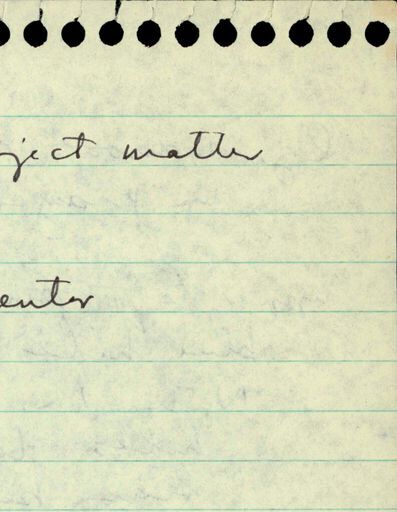 ject matter
entor